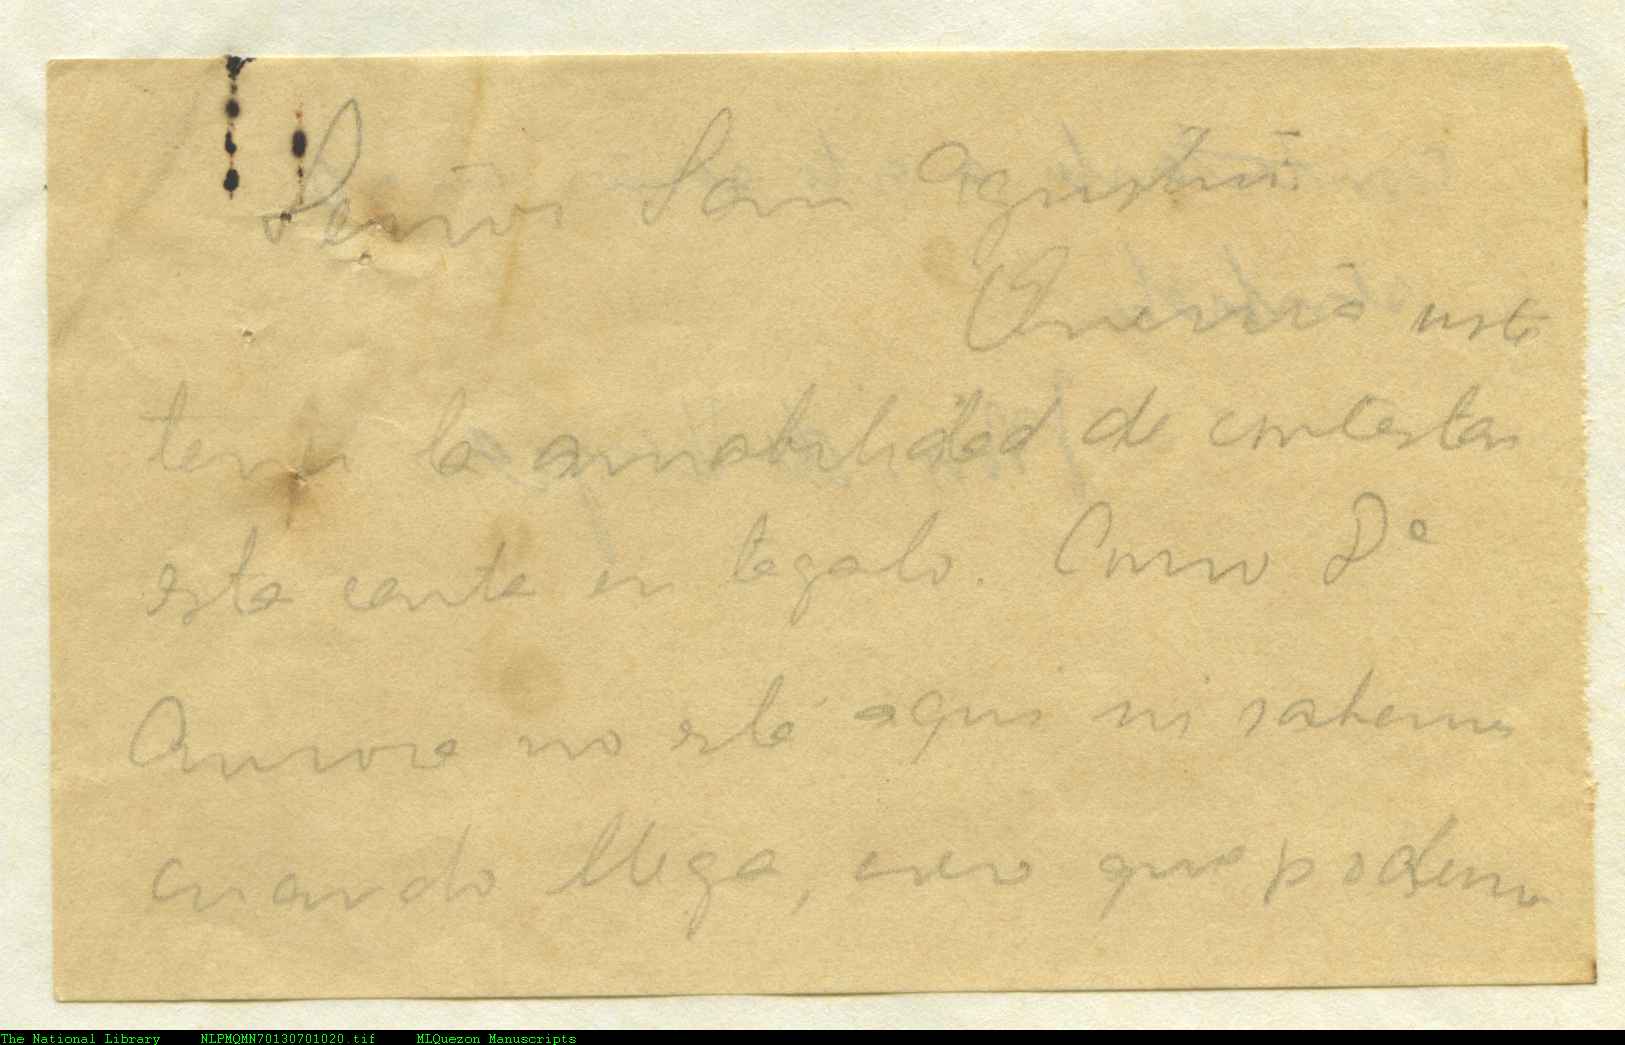 Señor San Agustin:
Querria uste
tener la amabilidad de contestar
esta carta en tagalo. Como Dª
Aurora no está aqui ni sabemos
cuando llega, creo que podemos
The National Library NLPMQMN70130701020.tif MLQuezon Manuscripts